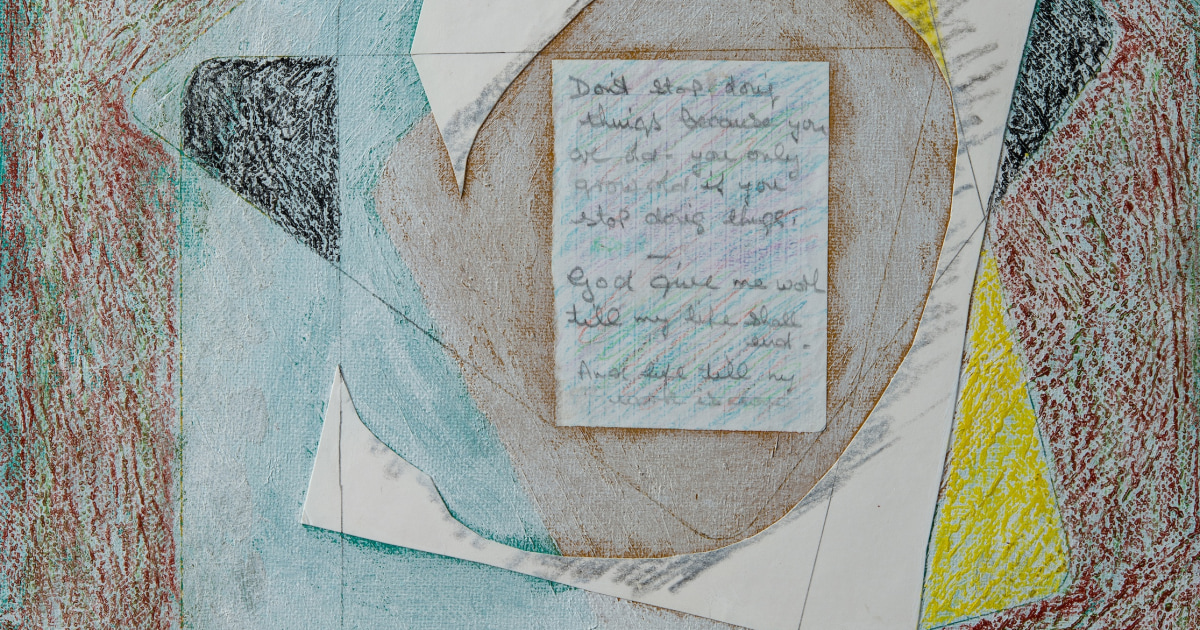 Don't stop doing
things because you
are old - you only
grow old if you
stop doing things.
God give me work
till my life shall
end.
And life till my
work is